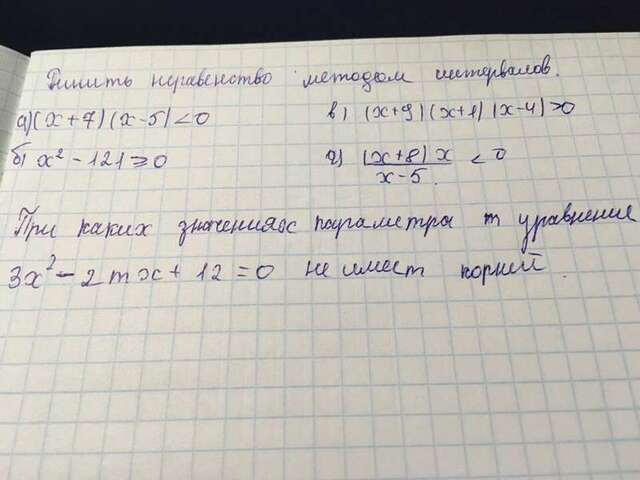 Решить неравенство методом интервалов.
а) (x+7)(x-5)<0
в) (x+9)(x+1)(x-4)>0
б) x² - 121 ⩾ 0
г) (x+8)x / x-5 < 0
При каких значениях параметры m уравнение
3x² - 2mx + 12 = 0 не имеет корней.